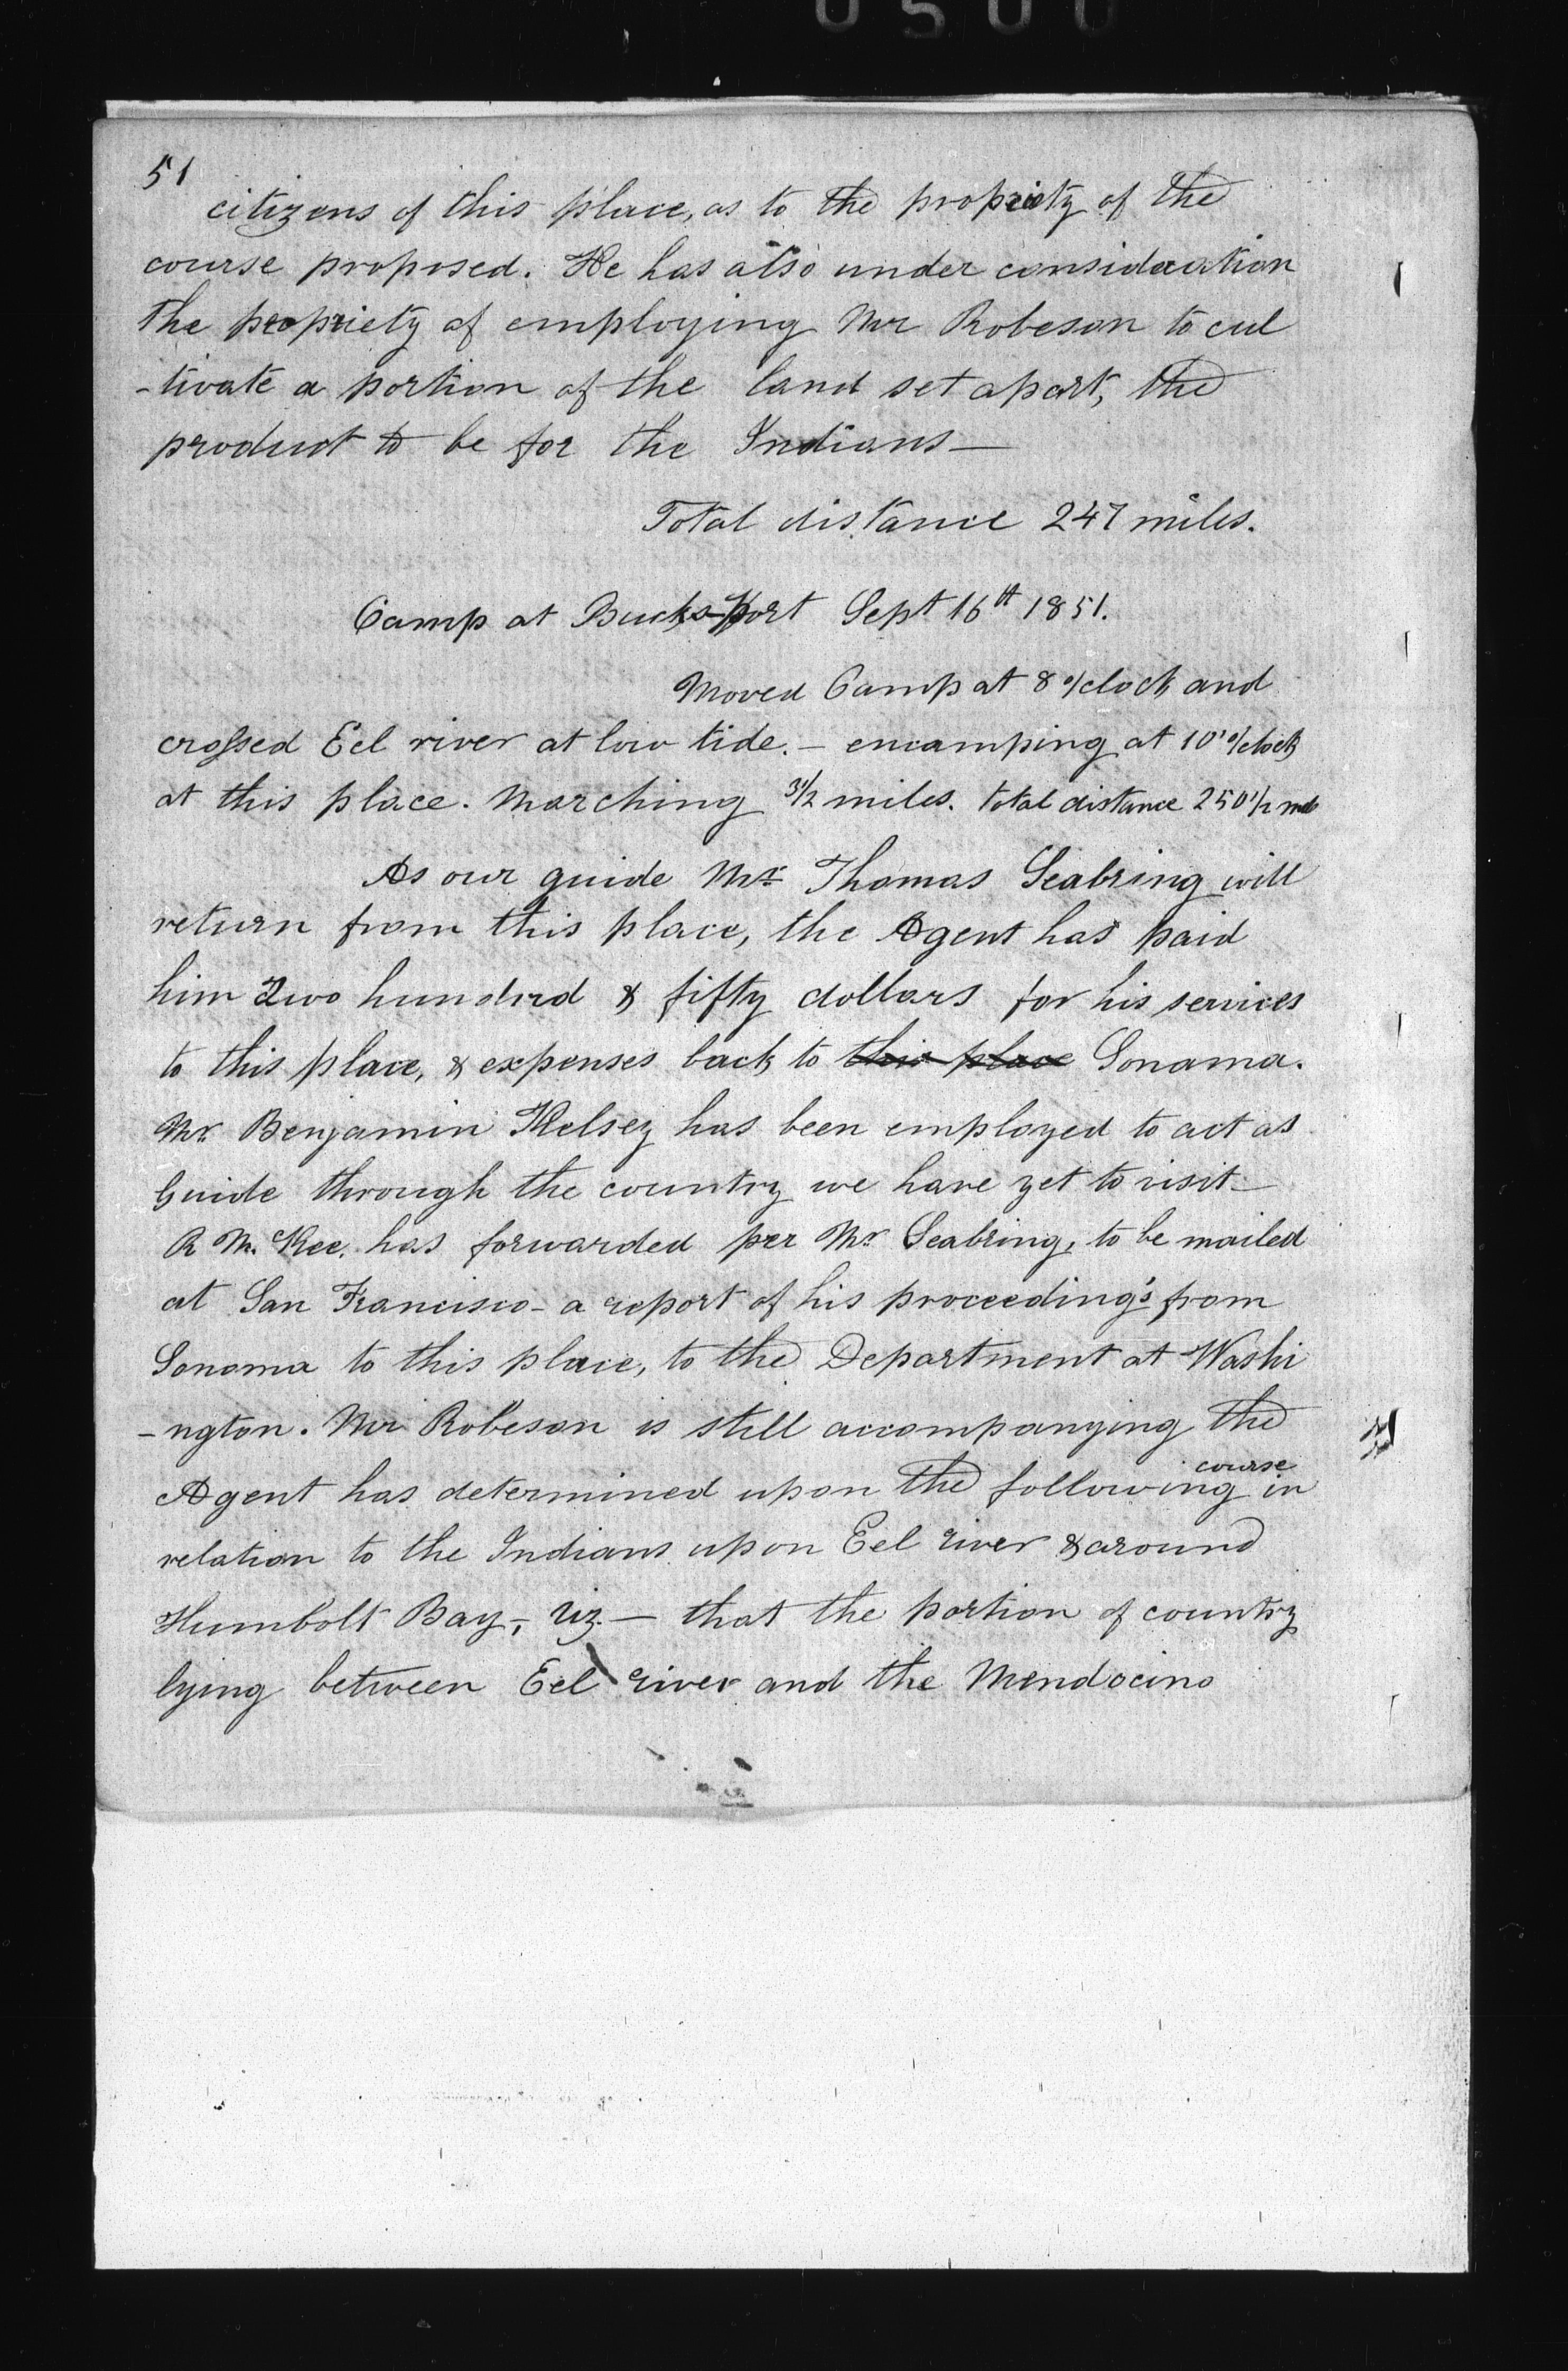 0500
51
citizens of this place, as to the propriety of the
course proposed. He has also under consideration
the propriety of employing Mr Robeson to cul
-tivate a portion of the land set apart, the
product to be for the Indians—
Total distance 247 miles.
Camp at Bucks-port Sept 16th 1851.
Moved Camp at 8 o/clock and
crossed Eel river at low tide. — encamping at 10 o/clock
at this place. Marching 3 1/2 miles. total distance 250 1/2 mls
As our guide Mr. Thomas Seabring will
return from this place, the Agent has paid
him Two hundred & fifty dollars for his services
to this place, & expenses back to this place Sonama.
Mr. Benjamin Kelsey has been employed to act as
Guide through the country we have yet to visit—
R Mc Kee. has forwarded per Mr Seabring, to be mailed
at San Francisco - a report of his proceeding's from
Sonoma to this place, to the Department at Washi
-ngton. Mr Robeson is still accompanying the
course
Agent has determined upon the following in
relation to the Indians upon Eel river & around
Humbolt Bay, viz — that the portion of country
lying between Eel river and the Mendocino